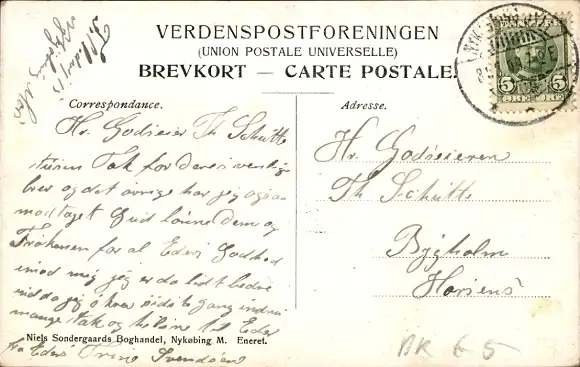 VERDENSPOSTFORENINGEN
(UNION POSTALE UNIVERSELLE)
BREVKORT — CARTE POSTALE.
5 5
Correspondance.
Hr. Godseier Th Schütte
Tusin Tak for deres venlige
brev og det øvrige har jeg ogsaa
modtaget Gud lønne Dem og
Frøkenen for al Eders Godhed
imod mig jeg er da lidt bedre
mange tak og hilsen til Eder
fra Eders Trine Svendsen
Niels Sondergaards Boghandel, Nykøbing M. Eneret.
Adresse.
Hr. Godseieren
Th Schütte
Bygholm
Horsens
BK 65